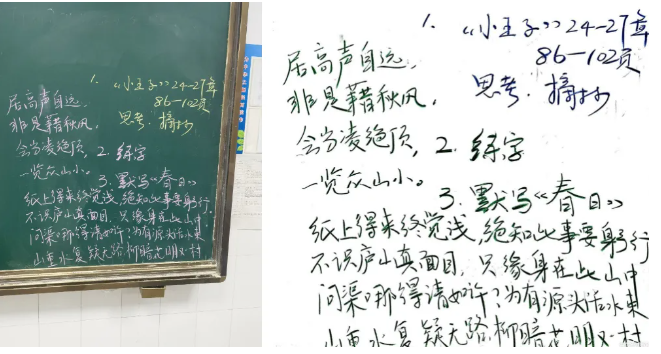 1. 《小王子》24-27章
86-102页
思考、摘抄
居高声自远，
非是藉秋风，
会当凌绝顶，
一览众山小。
2. 练字
3. 默写《春日》
纸上得来终觉浅，绝知此事要躬行
不识庐山真面目，只缘身在此山中
问渠那得清如许？为有源头活水来
山重水复疑无路，柳暗花明又一村
1. 《小王子》24-27章
86-102页
思考、摘抄
居高声自远，
非是藉秋风，
会当凌绝顶，
一览众山小。
2. 练字
3. 默写《春日》
纸上得来终觉浅，绝知此事要躬行
不识庐山真面目，只缘身在此山中
问渠那得清如许？为有源头活水来
山重水复疑无路，柳暗花明又一村